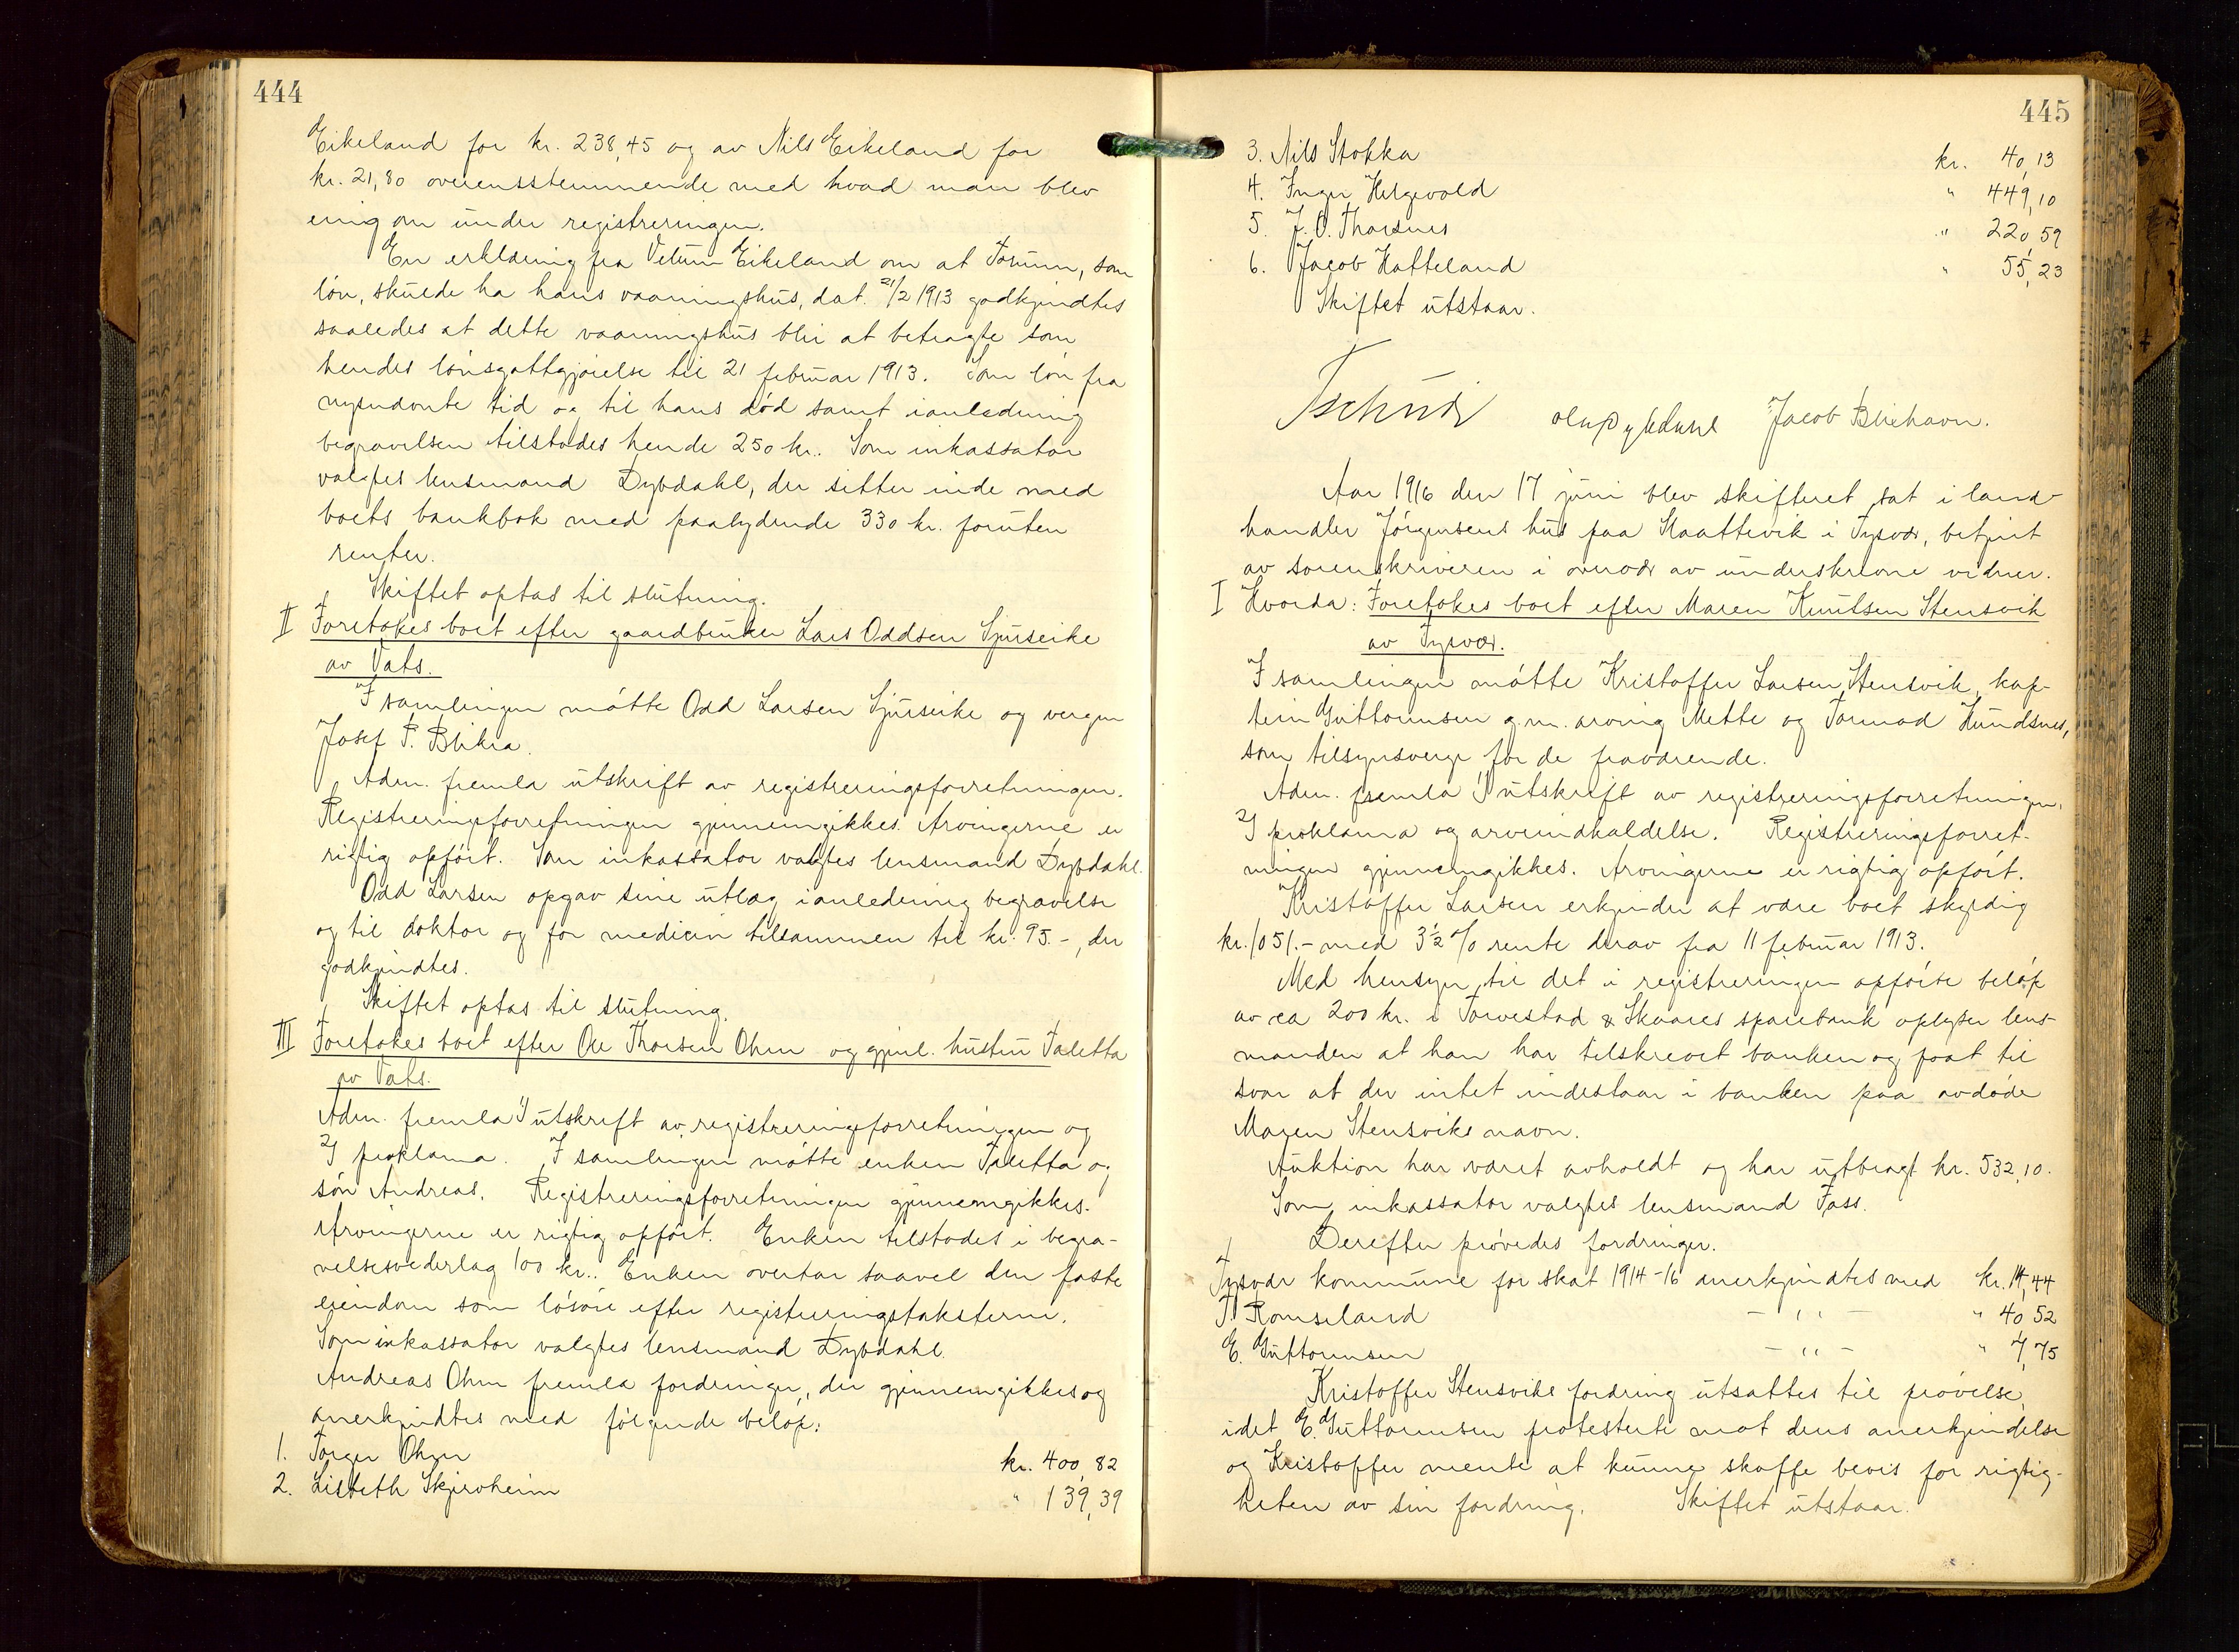 444
Eikeland for kr. 238,45 og av Nils Eikeland for
kr. 21,80 overensstemmende med hvad man blev
enig om under registreringen.
En erklæring fra Eikeland om at som
løn, skulde ha hans vaaningshus, dat. 21/2 1913 godkjendtes
saaledes at dette vaaningshus blir at betragte som
hendes lønsgottgjørelse til 21 februar 1913. Som løn fra
nysnævnte tid og til hans død samt i anledning
begravelsen tilstodes hende 250 kr. Som inkassator
valgtes lensmand Dybdahl, der sitter inde med
boets bankbok med paalydende 330 kr. foruten
renter.
Skiftet optas til slutning.
II Foretokes boet efter gaardbruker Lars Oddsen Sjurseike
av Vats.
I samlingen møtte Odd Larsen Sjurseike og vergen
Josef P. Blikra.
Adm. fremla utskrift av registreringsforretningen.
Registreringsforretningen gjennemgikkes. Arvingerne er
rigtig opført. Som inkassator valgtes lensmand Dybdahl.
Odd Larsen opgav sine utlæg i anledning begravelse
og til doktor og for medicin tilsammen til kr. 95.-, der
godkjendtes.
Skiftet optas til slutning.
III Foretokes boet efter Ole Thorsen Ohm og gjenl. hustru Taletta
av Vats.
Adm. fremla 1) utskrift av registreringsforretningen og
2) proklama. I samlingen møtte enken Taletta og
søn Andreas. Registreringsforretningen gjennemgikkes.
Arvingerne er rigtig opført. Enken tilstodes i begra-
velsesvederlag 100 kr.. Enken overtar saavel den faste
eiendom som løsøre efter registreringstaksterne.
Som inkassator valgtes lensmand Dybdahl.
Andreas Ohm fremla fordringer, der gjennemgikkes og
anerkjendtes med følgende beløp:
1. Torger Ohm kr. 400,82
2. Lisbeth Skjervheim " 139,39
445
3. Nils Stokka kr. 40,13
4. Inger Helgevold " 449,10
5. J. O. Thorsnes " 220,59
6. Jacob Hatteland " 55,23
Skiftet utstaar.
Tschudi Olaf Dybdahl Jacob Blikhavn.
Aar 1916 den 17 juni blev skifteret sat i land-
handler Jørgensens hus paa Slaattevik i Tysvær, betjent
av sorenskriveren i overvær av underskrevne vidner.
I Hvorda: Foretokes boet efter Maren Knutsen Stensvik
av Tysvær.
I samlingen møtte Kristoffer Larsen Stensvik, kap-
tein Guttormsen g.m. arving Mette og Tormod Hundsnes,
som tilsynsverge for de fraværende.
Adm. fremla 1) utskrift av registreringsforretningen,
2) proklama og arveindkaldelse. Registreringsforret-
ningen gjennemgikkes. Arvingerne er rigtig opført.
Kristoffer Larsen erkjender at være boet skyldig
kr. 1051.- med 3 1/2 % rente derav fra 11 februar 1913.
Med hensyn til det i registreringen opførte beløp
av ca 200 kr. i Torvestad & Skaares sparebank oplyser lens-
manden at han har tilskrevet banken og faat til
svar at der intet indestaar i banken paa avdøde
Maren Stensviks navn.
Auktion har været avholdt og har utbragt kr. 532,10.
Som inkassator valgtes lensmand Fass.
Derefter prøvedes fordringer.
Tysvær kommune for skat 1914-16 anerkjendtes med kr. 14,44
T. Romseland - " - " 40,52
E. Guttormsen - " - " 7,75
Kristoffer Stensviks fordring utsattes til prøvelse,
idet E. Guttormsen protesterte mot dens anerkjendelse
og Kristoffer mente at kunne skaffe bevis for rigtig-
heten av sin fordring. Skiftet utstaar.